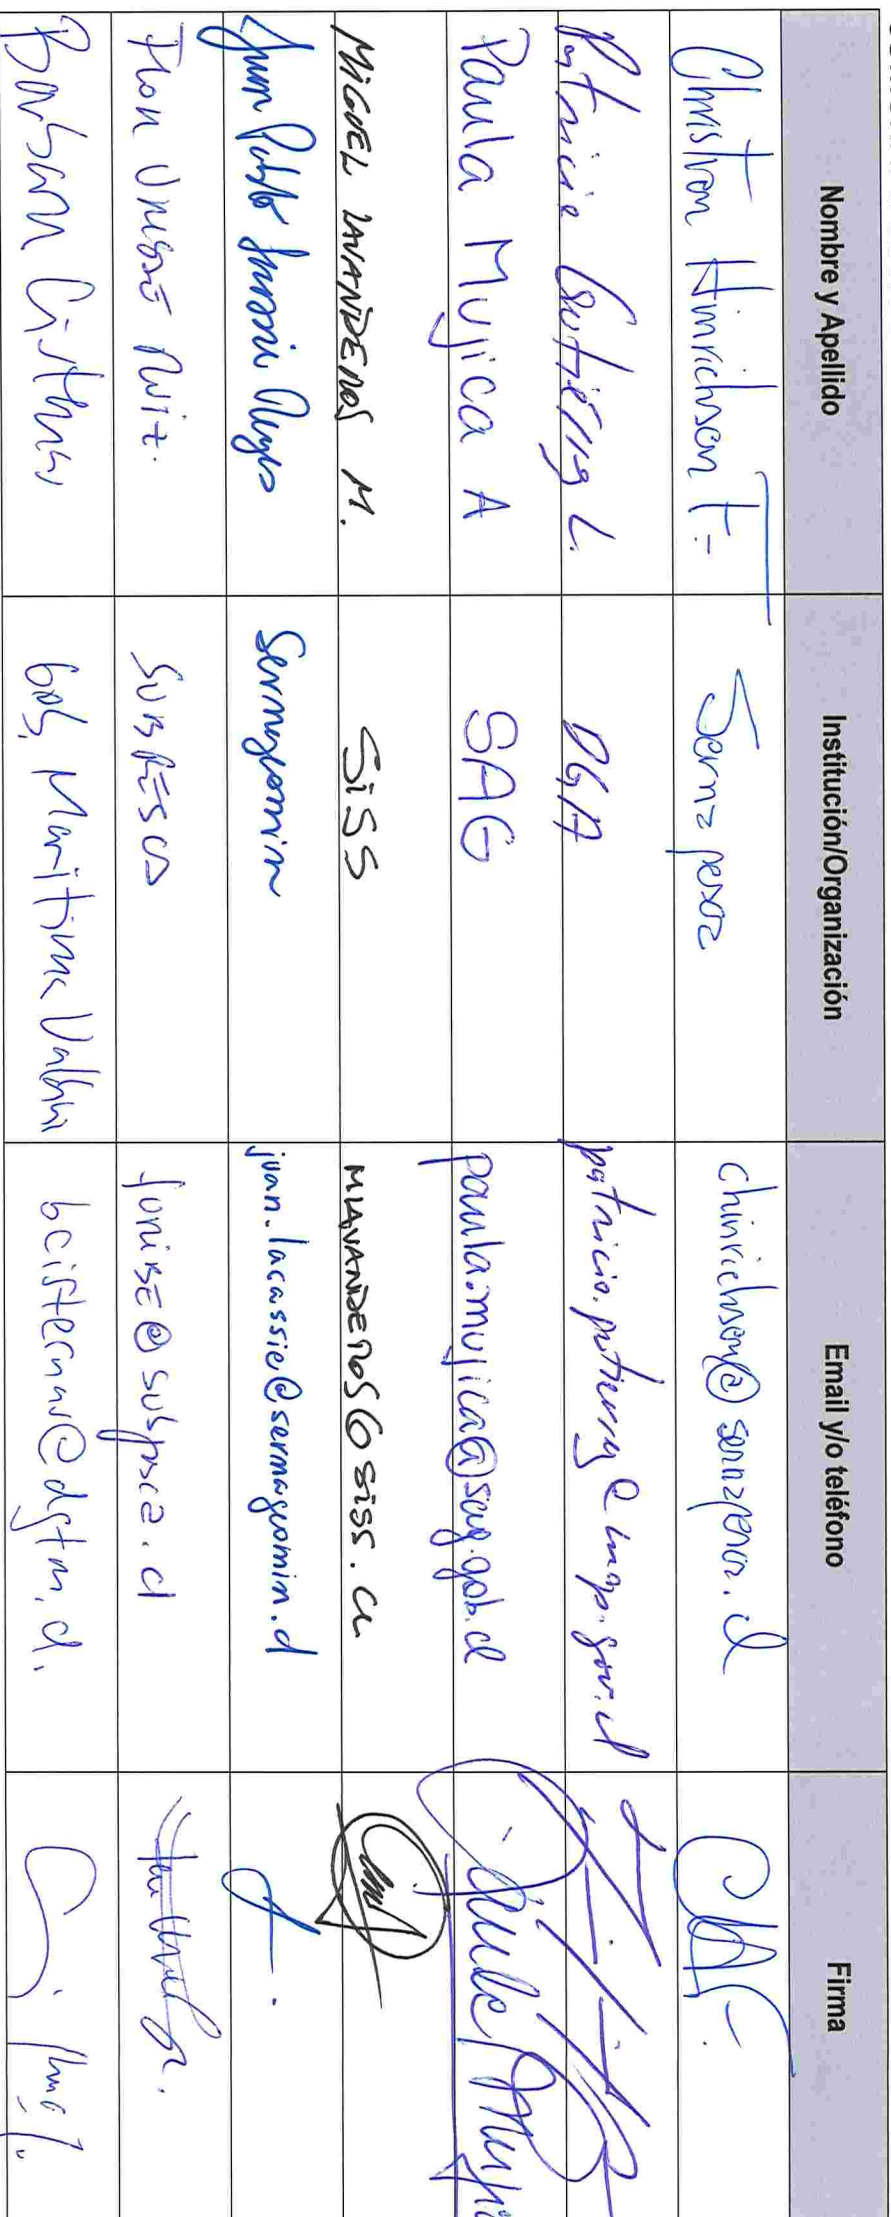 Nombre y Apellido Institución/Organización Email y/o teléfono Firma
Christian Hinrichsen T.- Sernapesca chinrichsen@sernapesca.cl
Patricio Gutiérrez L. DGA patricio.gutierrez@mop.gov.cl
Paula Mujica A SAG paula.mujica@sag.gob.cl Paula Mujica
MIGUEL LAVANDEROS M. SISS MLAVANDEROS@SISS.CL
Juan Pablo Lacassie Reyes Sernageomin juan.lacassie@sernageomin.cl
Flor Uribe Ruiz. SUBPESCA furibe@subpesca.cl
Barbara Cisternas Gob. Maritima bcisternas@dgtm.cl.